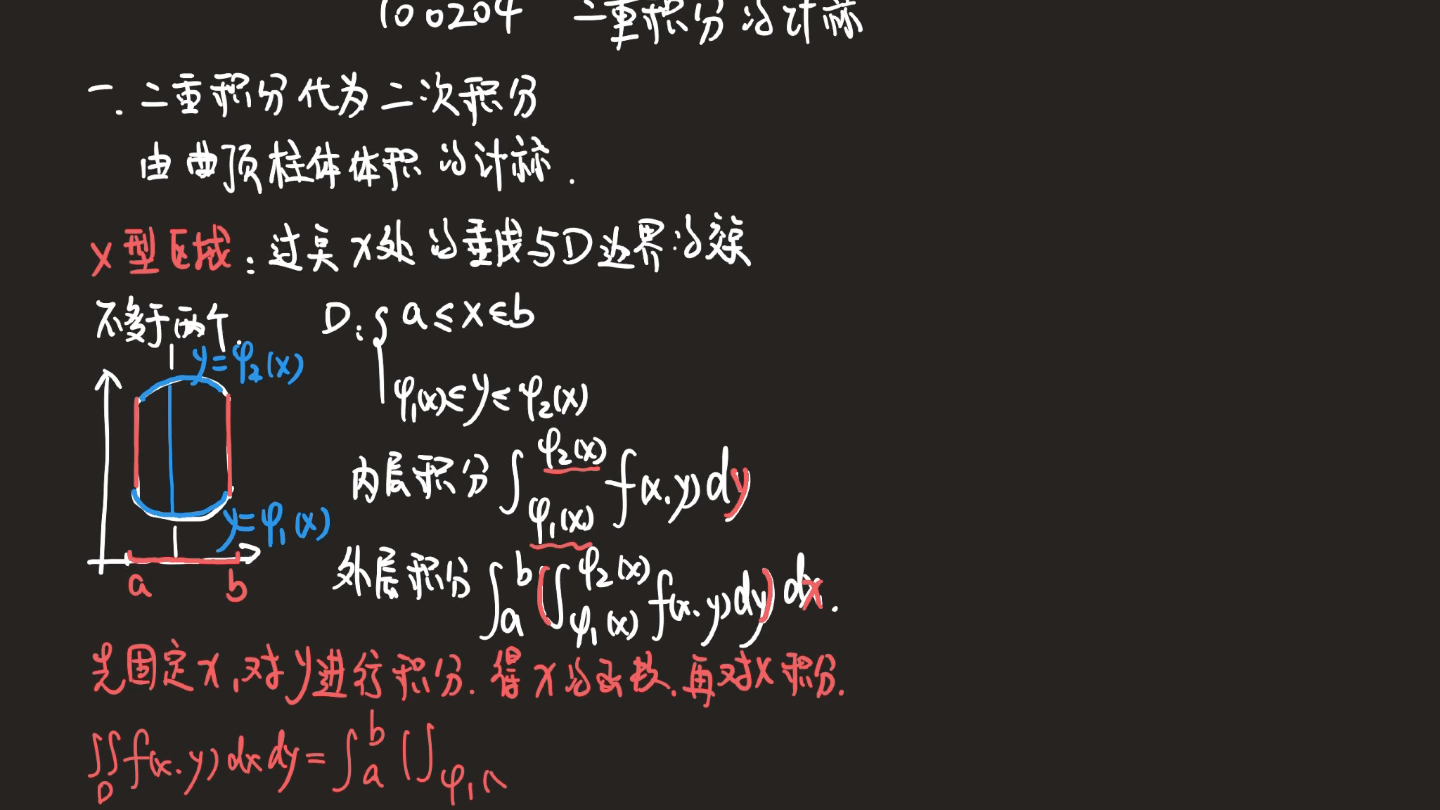 100204 二重积分的计算
一. 二重积分代为二次积分
由曲顶柱体体积的计算.
X型区域: 过点x处的垂线与D边界的交集
不多于两个. D: { a≤x≤b
φ₁(x)≤y≤φ₂(x)
y=φ₂(x)
内层积分 ∫_{φ₁(x)}^{φ₂(x)} f(x,y)dy
y=φ₁(x)
外层积分 ∫_a^b (∫_{φ₁(x)}^{φ₂(x)} f(x,y)dy) dx.
a b
先固定x,对y进行积分.得x的函数.再对x积分.
∬_D f(x,y)dxdy=∫_a^b (∫_{φ₁(